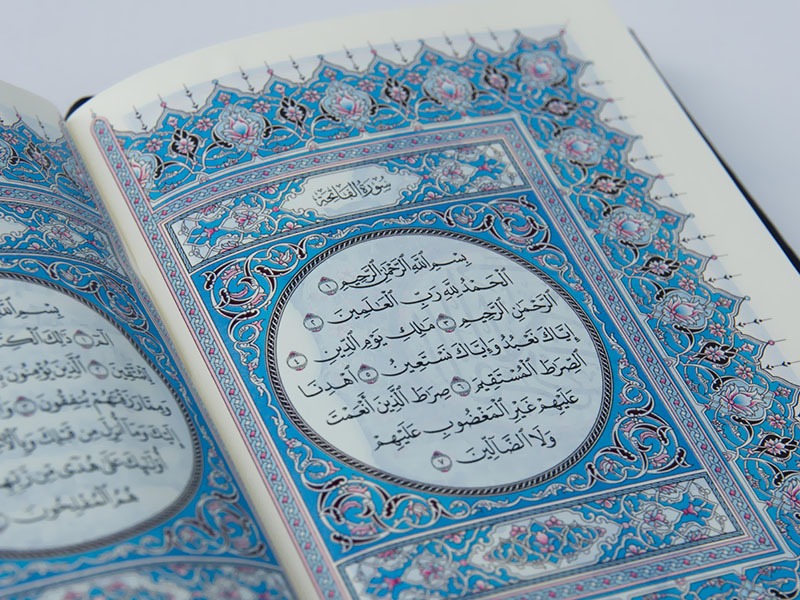 سُورَةُ الفَاتِحَةِ
بِسْمِ ٱللَّهِ ٱلرَّحْمَٰنِ ٱلرَّحِيمِ ١
ٱلْحَمْدُ لِلَّهِ رَبِّ ٱلْعَٰلَمِينَ ٢
ٱلرَّحْمَٰنِ ٱلرَّحِيمِ ٣ مَٰلِكِ يَوْمِ ٱلدِّينِ ٤
إِيَّاكَ نَعْبُدُ وَإِيَّاكَ نَسْتَعِينُ ٥ ٱهْدِنَا
ٱلصِّرَٰطَ ٱلْمُسْتَقِيمَ ٦ صِرَٰطَ ٱلَّذِينَ أَنْعَمْتَ
عَلَيْهِمْ غَيْرِ ٱلْمَغْضُوبِ عَلَيْهِمْ
وَلَا ٱلضَّآلِّينَ ٧
بِسْمِ ٱللَّهِ
الٓمٓ ١ ذَٰلِكَ
ٱلَّذِينَ يُؤْمِنُونَ
وَمِمَّا رَزَقْنَٰهُمْ يُنفِقُونَ
إِلَيْكَ وَمَآ أُنزِلَ مِن قَبْلِكَ
أُو۟لَٰٓئِكَ عَلَىٰ هُدًى مِّن رَّبِّهِمْ
هُمُ ٱلْمُفْلِحُونَ